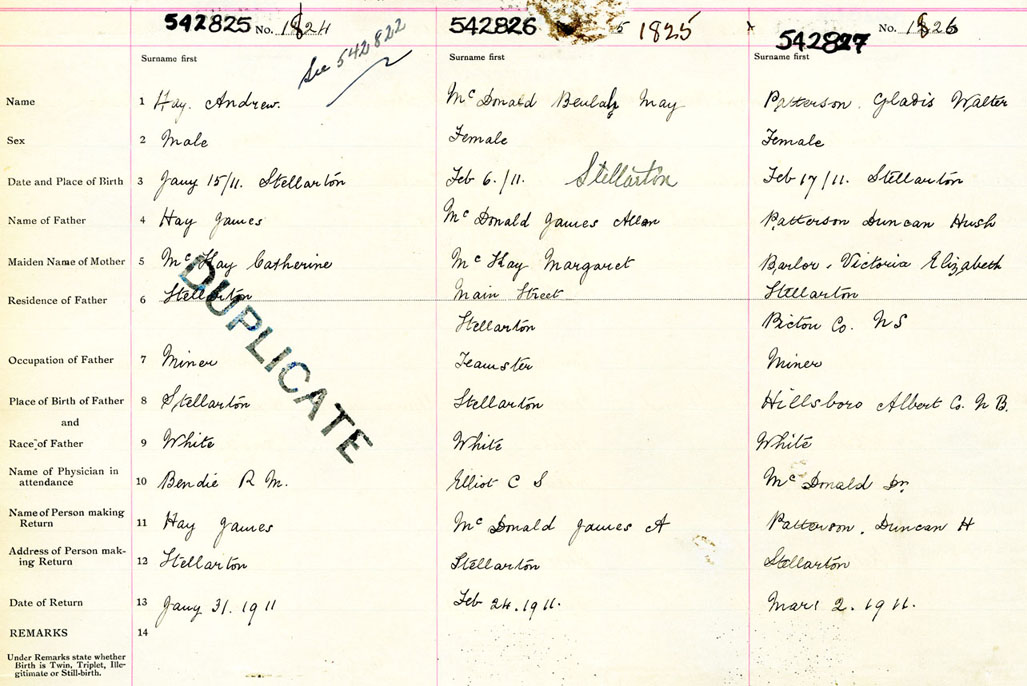 542825 No. 1824 542826 5 1825 542827 No. 1826
See 542822
Surname first Surname first Surname first
Name 1 Hay. Andrew. McDonald Beulah May Patterson. Gladis Walter
Sex 2 Male Female Female
Date and Place of Birth 3 Jany 15/11. Stellarton Feb 6./11. Stellarton Feb 17/11. Stellarton
Name of Father 4 Hay James McDonald James Allan Patterson Duncan Hush
Maiden Name of Mother 5 McKay Catherine McKay Margaret Barlor, Victoria Elizabeth
Residence of Father 6 Stellarton Main Street Stellarton
Stellarton Pictou Co. NS
Occupation of Father 7 Miner Teamster Miner
Place of Birth of Father 8 Stellarton Stellarton Hillsboro Albert Co. N B.
and
Race of Father 9 White White White
Name of Physician in
attendance 10 Bendie R M. Elliot C S McDonald Dr.
Name of Person making
Return 11 Hay James McDonald James A Patterson, Duncan H
Address of Person mak-
ing Return 12 Stellarton Stellarton Stellarton
Date of Return 13 Jany 31. 1911 Feb 24. 1911. Mar 2. 1911.
REMARKS 14
Under Remarks state whether
Birth is Twin, Triplet, Ille-
gitimate or Still-birth.
DUPLICATE